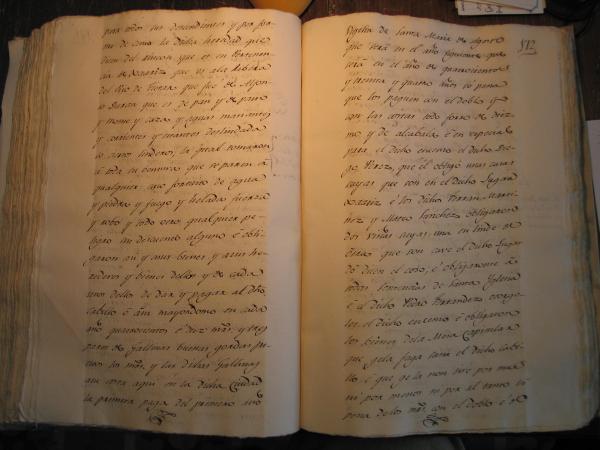 para ellos sus descendientes y por fir
me de como la dicha heredad que
dicen del Rincon que es en Perteren
cia de que es a la Ribera
del Rio de que fue de Alfon
so Duran que es de pan y de pasto
y monte y caza y aguas manantes
y corrientes y estantes deslindada
so ciertos linderos, la qual tomaron
a toda su ventura que se paren a
qualquier caso fortuito de agua
y piedra y fuego y helada fuerza
y robo y todo otro qualquier pe
ligro sin descuento alguno é obli
garon asi y a sus bienes y a sus he
rederos y bienes dellos y de cada
uno dellos de dar y pagar al dho
Cabildo é a su mayordomo en cada
año quatrocientos é diez mrs. y tres
pares de Gallinas buenas gordas pues
tos los mrs. y las dichas Gallinas
aqui en la dicha Ciudad
la primera paga del primero año
512
Vigilia de Santa Maria de Agosto
que será en el año siguiente que
será en el año de quatrocientos
y treinta y quatro años so pena
que los paguen con el doblo y
con las costas todo forro de diez
mo y de alcabala é en especial
para el dicho encenso el dicho Die
go Perez, que él obligó unas casas
suyas que son en el dicho Lugar
é los dichos Martin Marti
nez y Mateo Sanchez obligaron
dos viñas suyas, una en linde de
otras que son cave el dicho Lugar
do dicen el coso, é obligaronse a
todas sentencias de Santa Iglesia
é el dicho Pedro Fernandez otorgo
les el dicho encenso é obligaron
los bienes de la Mesa Capitular
que gela faga sana el dicho Cabil
do é que gela non tire por mas
ni por menos ni por al tanto so
pena de los mrs. con el doblo é so